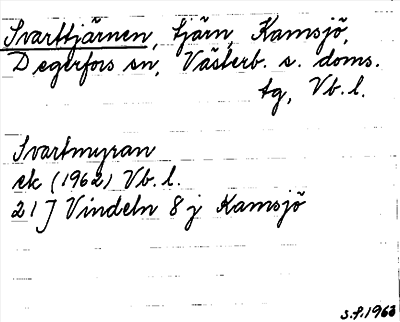 Svarttjärnen, tjärn, Kamsjö,
Degerfors sn, Västerb. s. doms.
tg, Vb. l.
Svartmyran
ek (1962) Vb. l.
21J Vindeln 8 j Kamsjö
s.f. 1963